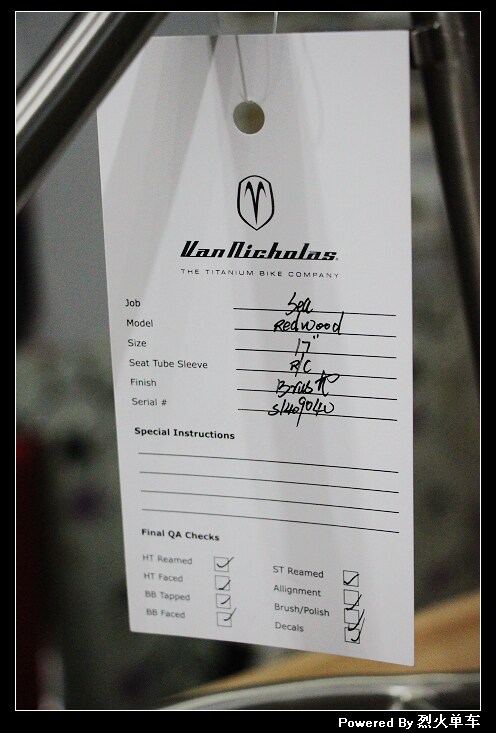 VanNicholas
THE TITANIUM BIKE COMPANY
Job Sea
Model Redwood
Size 17"
Seat Tube Sleeve R/C
Finish
Serial # S1409040
Special Instructions
Final QA Checks
HT Reamed
HT Faced
BB Tapped
BB Faced
ST Reamed
Allignment
Brush/Polish
Decals
Powered By 烈火单车